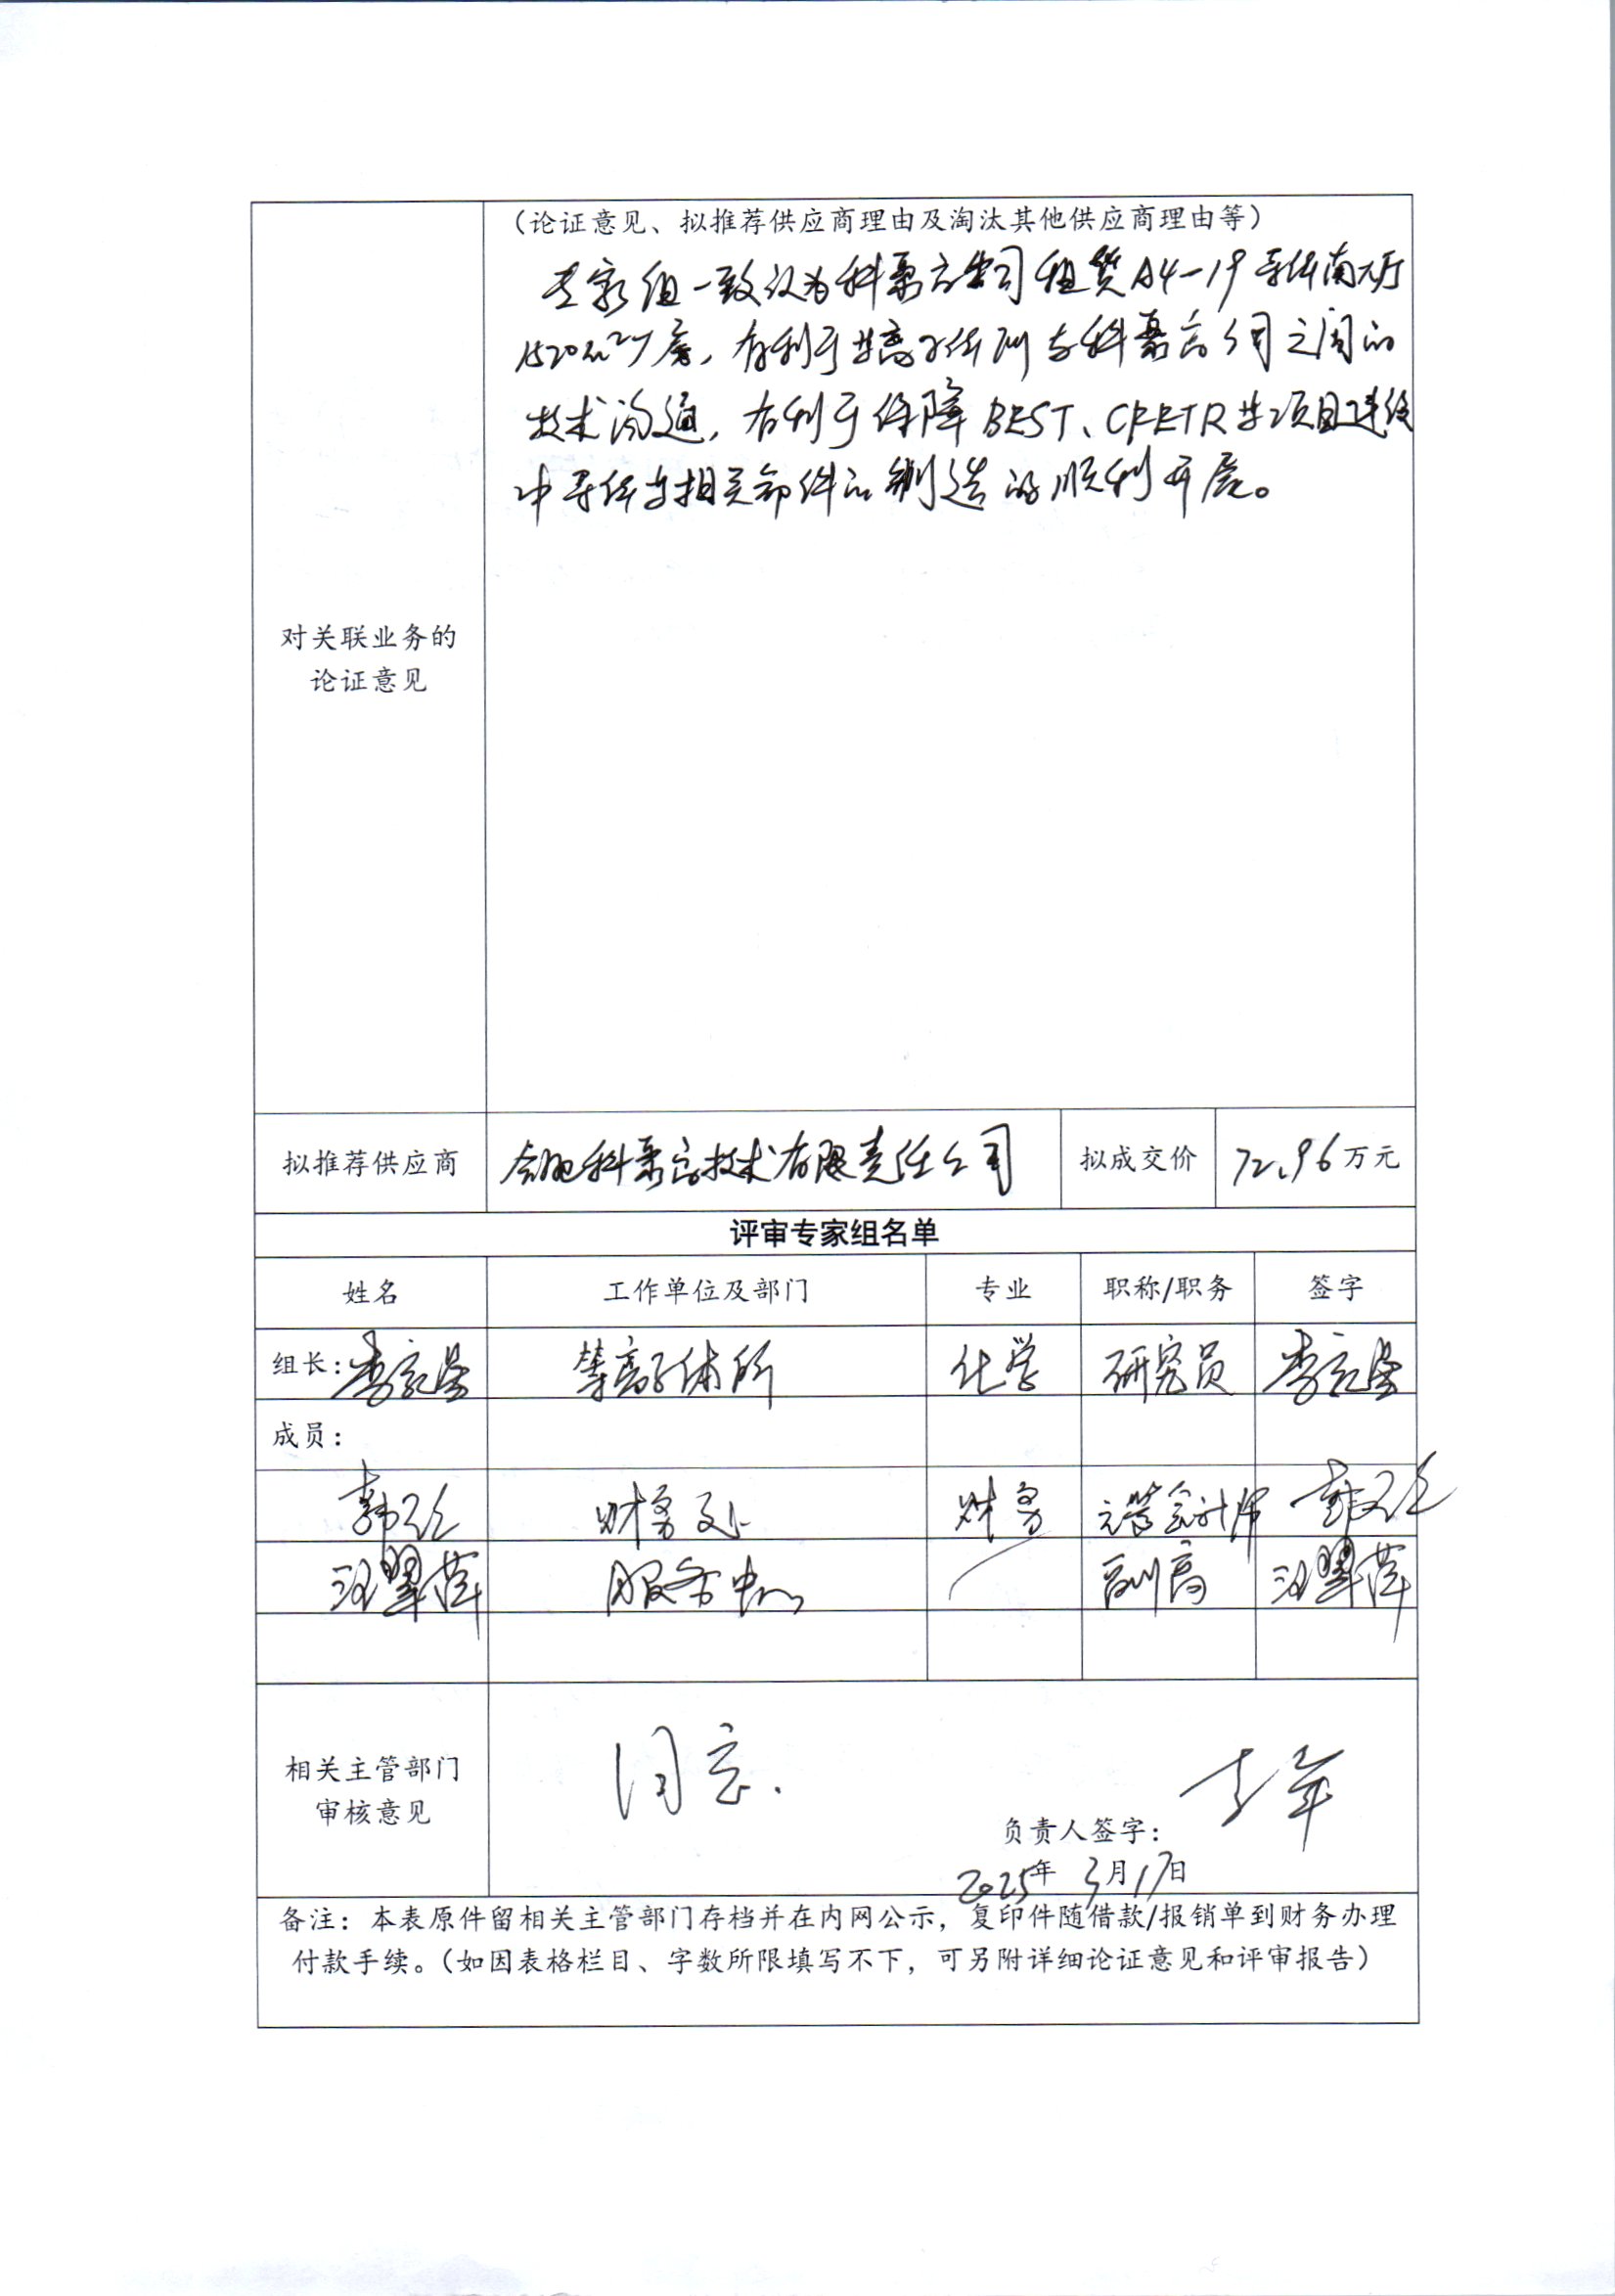 （论证意见、拟推荐供应商理由及淘汰其他供应商理由等）
专家组一致认为科聚高公司租赁A4-19导体南大厅
1520m²厂房，有利于等离子体所与科聚高公司之间的
技术沟通，有利于保障BEST、CFETR等项目建设
中导体与相关部件的制造的顺利开展。
对关联业务的
论证意见
拟推荐供应商 合肥科聚高技术有限责任公司 拟成交价 72.96万元
评审专家组名单
姓名 工作单位及部门 专业 职称/职务 签字
组长： 等离子体所 化学 研究员
成员：
财务处 财务 高等会计师
汪翠萍 服务中心 副高 汪翠萍
相关主管部门
审核意见
同意.
负责人签字：
2025年 3月17日
备注：本表原件留相关主管部门存档并在内网公示，复印件随借款/报销单到财务办理
付款手续。（如因表格栏目、字数所限填写不下，可另附详细论证意见和评审报告）